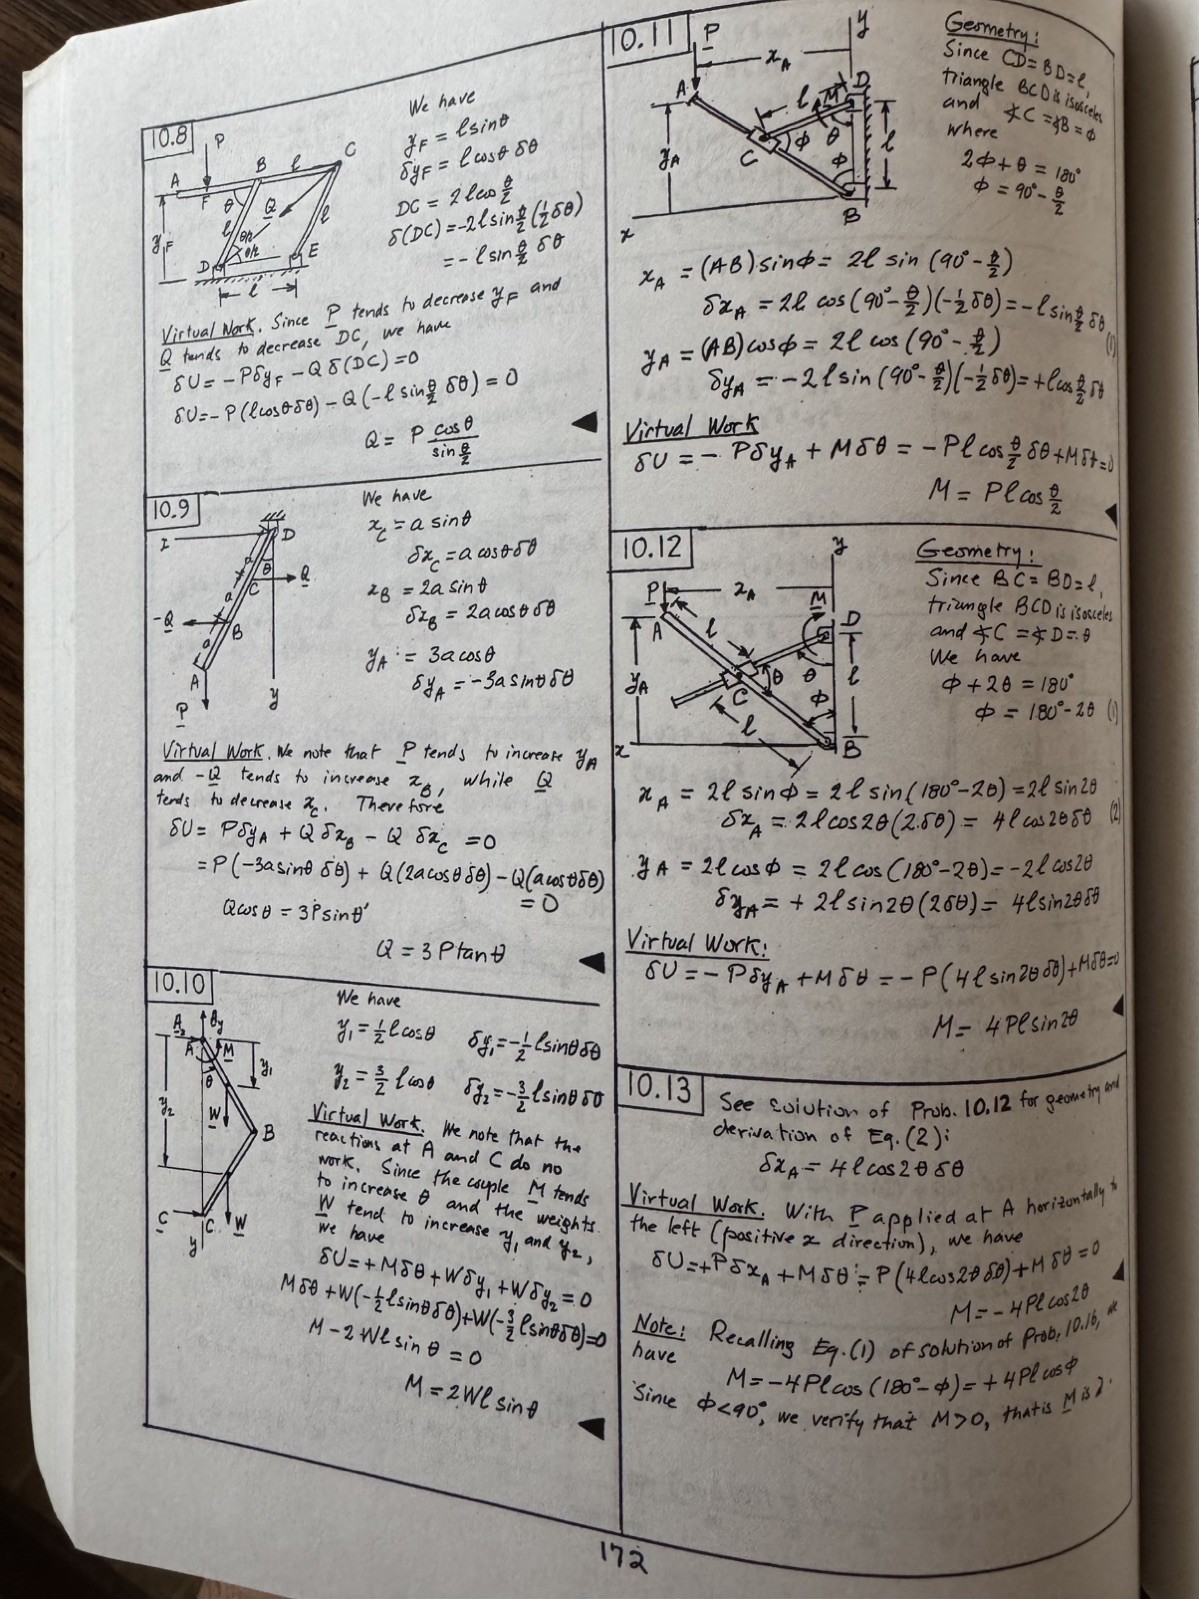 10.8
P
A
F
B
l
C
θ
Q
l
l
y_F
θ/2
θ/2
D
E
l
We have
y_F = l sinθ
δy_F = l cosθ δθ
DC = 2l cos θ/2
δ(DC) = -2l sin θ/2 (1/2 δθ)
= - l sin θ/2 δθ
Virtual Work. Since P tends to decrease y_F and
Q tends to decrease DC, we have
δU = -Pδy_F - Q δ(DC) = 0
δU = -P(l cosθ δθ) - Q(-l sin θ/2 δθ) = 0
Q = P cosθ / sin θ/2
10.9
D
θ
a
C
Q
a
-Q
B
a
A
P
y
We have
x_C = a sinθ
δx_C = a cosθ δθ
x_B = 2a sinθ
δx_B = 2a cosθ δθ
y_A = 3a cosθ
δy_A = -3a sinθ δθ
Virtual Work. We note that P tends to increase y_A
and -Q tends to increase x_B, while Q
tends to decrease x_C. Therefore
δU = Pδy_A + Q δx_B - Q δx_C = 0
= P(-3a sinθ δθ) + Q(2a cosθ δθ) - Q(a cosθ δθ)
= 0
Q cosθ = 3P sinθ
Q = 3P tanθ
10.10
A
M
y₁
θ
y₂
W
B
C
C
W
y
We have
y₁ = 1/2 l cosθ δy₁ = -1/2 l sinθ δθ
y₂ = 3/2 l cosθ δy₂ = -3/2 l sinθ δθ
Virtual Work. We note that the
reactions at A and C do no
work. Since the couple M tends
to increase θ and the weights
W tend to increase y₁ and y₂,
we have
δU = +Mδθ + Wδy₁ + Wδy₂ = 0
Mδθ + W(-1/2 l sinθ δθ) + W(-3/2 l sinθ δθ) = 0
M - 2Wl sin θ = 0
M = 2Wl sinθ
10.11
P
x_A
y
A
l
M
D
y_A
C
φ
θ
l
φ
B
x
Geometry:
Since CD = BD = l,
triangle BCD is isosceles
and ∢C = ∢B = φ
where
2φ + θ = 180°
φ = 90° - θ/2
x_A = (AB) sinφ = 2l sin (90° - θ/2)
δx_A = 2l cos(90° - θ/2)(-1/2 δθ) = -l sin θ/2 δθ
(1)
y_A = (AB) cosφ = 2l cos (90° - θ/2)
δy_A = -2l sin (90° - θ/2)(-1/2 δθ) = +l cos θ/2 δθ
Virtual Work
δU = - Pδy_A + Mδθ = -Pl cos θ/2 δθ + Mδθ = 0
M = Pl cos θ/2
10.12
y
P
x_A
M
D
A
l
y_A
θ
θ
l
C
φ
l
x
B
Geometry:
Since BC = BD = l,
triangle BCD is isosceles
and ∢C = ∢D = θ
We have
φ + 2θ = 180°
φ = 180° - 2θ (1)
x_A = 2l sinφ = 2l sin(180° - 2θ) = 2l sin2θ
δx_A = 2l cos2θ(2δθ) = 4l cos2θ δθ (2)
y_A = 2l cosφ = 2l cos(180° - 2θ) = -2l cos2θ
δy_A = + 2l sin2θ(2δθ) = 4l sin2θ δθ
Virtual Work:
δU = - Pδy_A + Mδθ = - P(4l sin2θ δθ) + Mδθ = 0
M = 4Pl sin2θ
10.13
See solution of Prob. 10.12 for geometry and
derivation of Eq. (2):
δx_A = 4l cos2θ δθ
Virtual Work. With P applied at A horizontally to
the left (positive x direction), we have
δU = +Pδx_A + Mδθ = P(4l cos2θ δθ) + Mδθ = 0
M = -4Pl cos2θ
Note: Recalling Eq. (1) of solution of Prob. 10.16, we
have
M = -4Pl cos(180° - φ) = +4Pl cosφ
Since φ < 90°, we verify that M > 0, that is M is
172